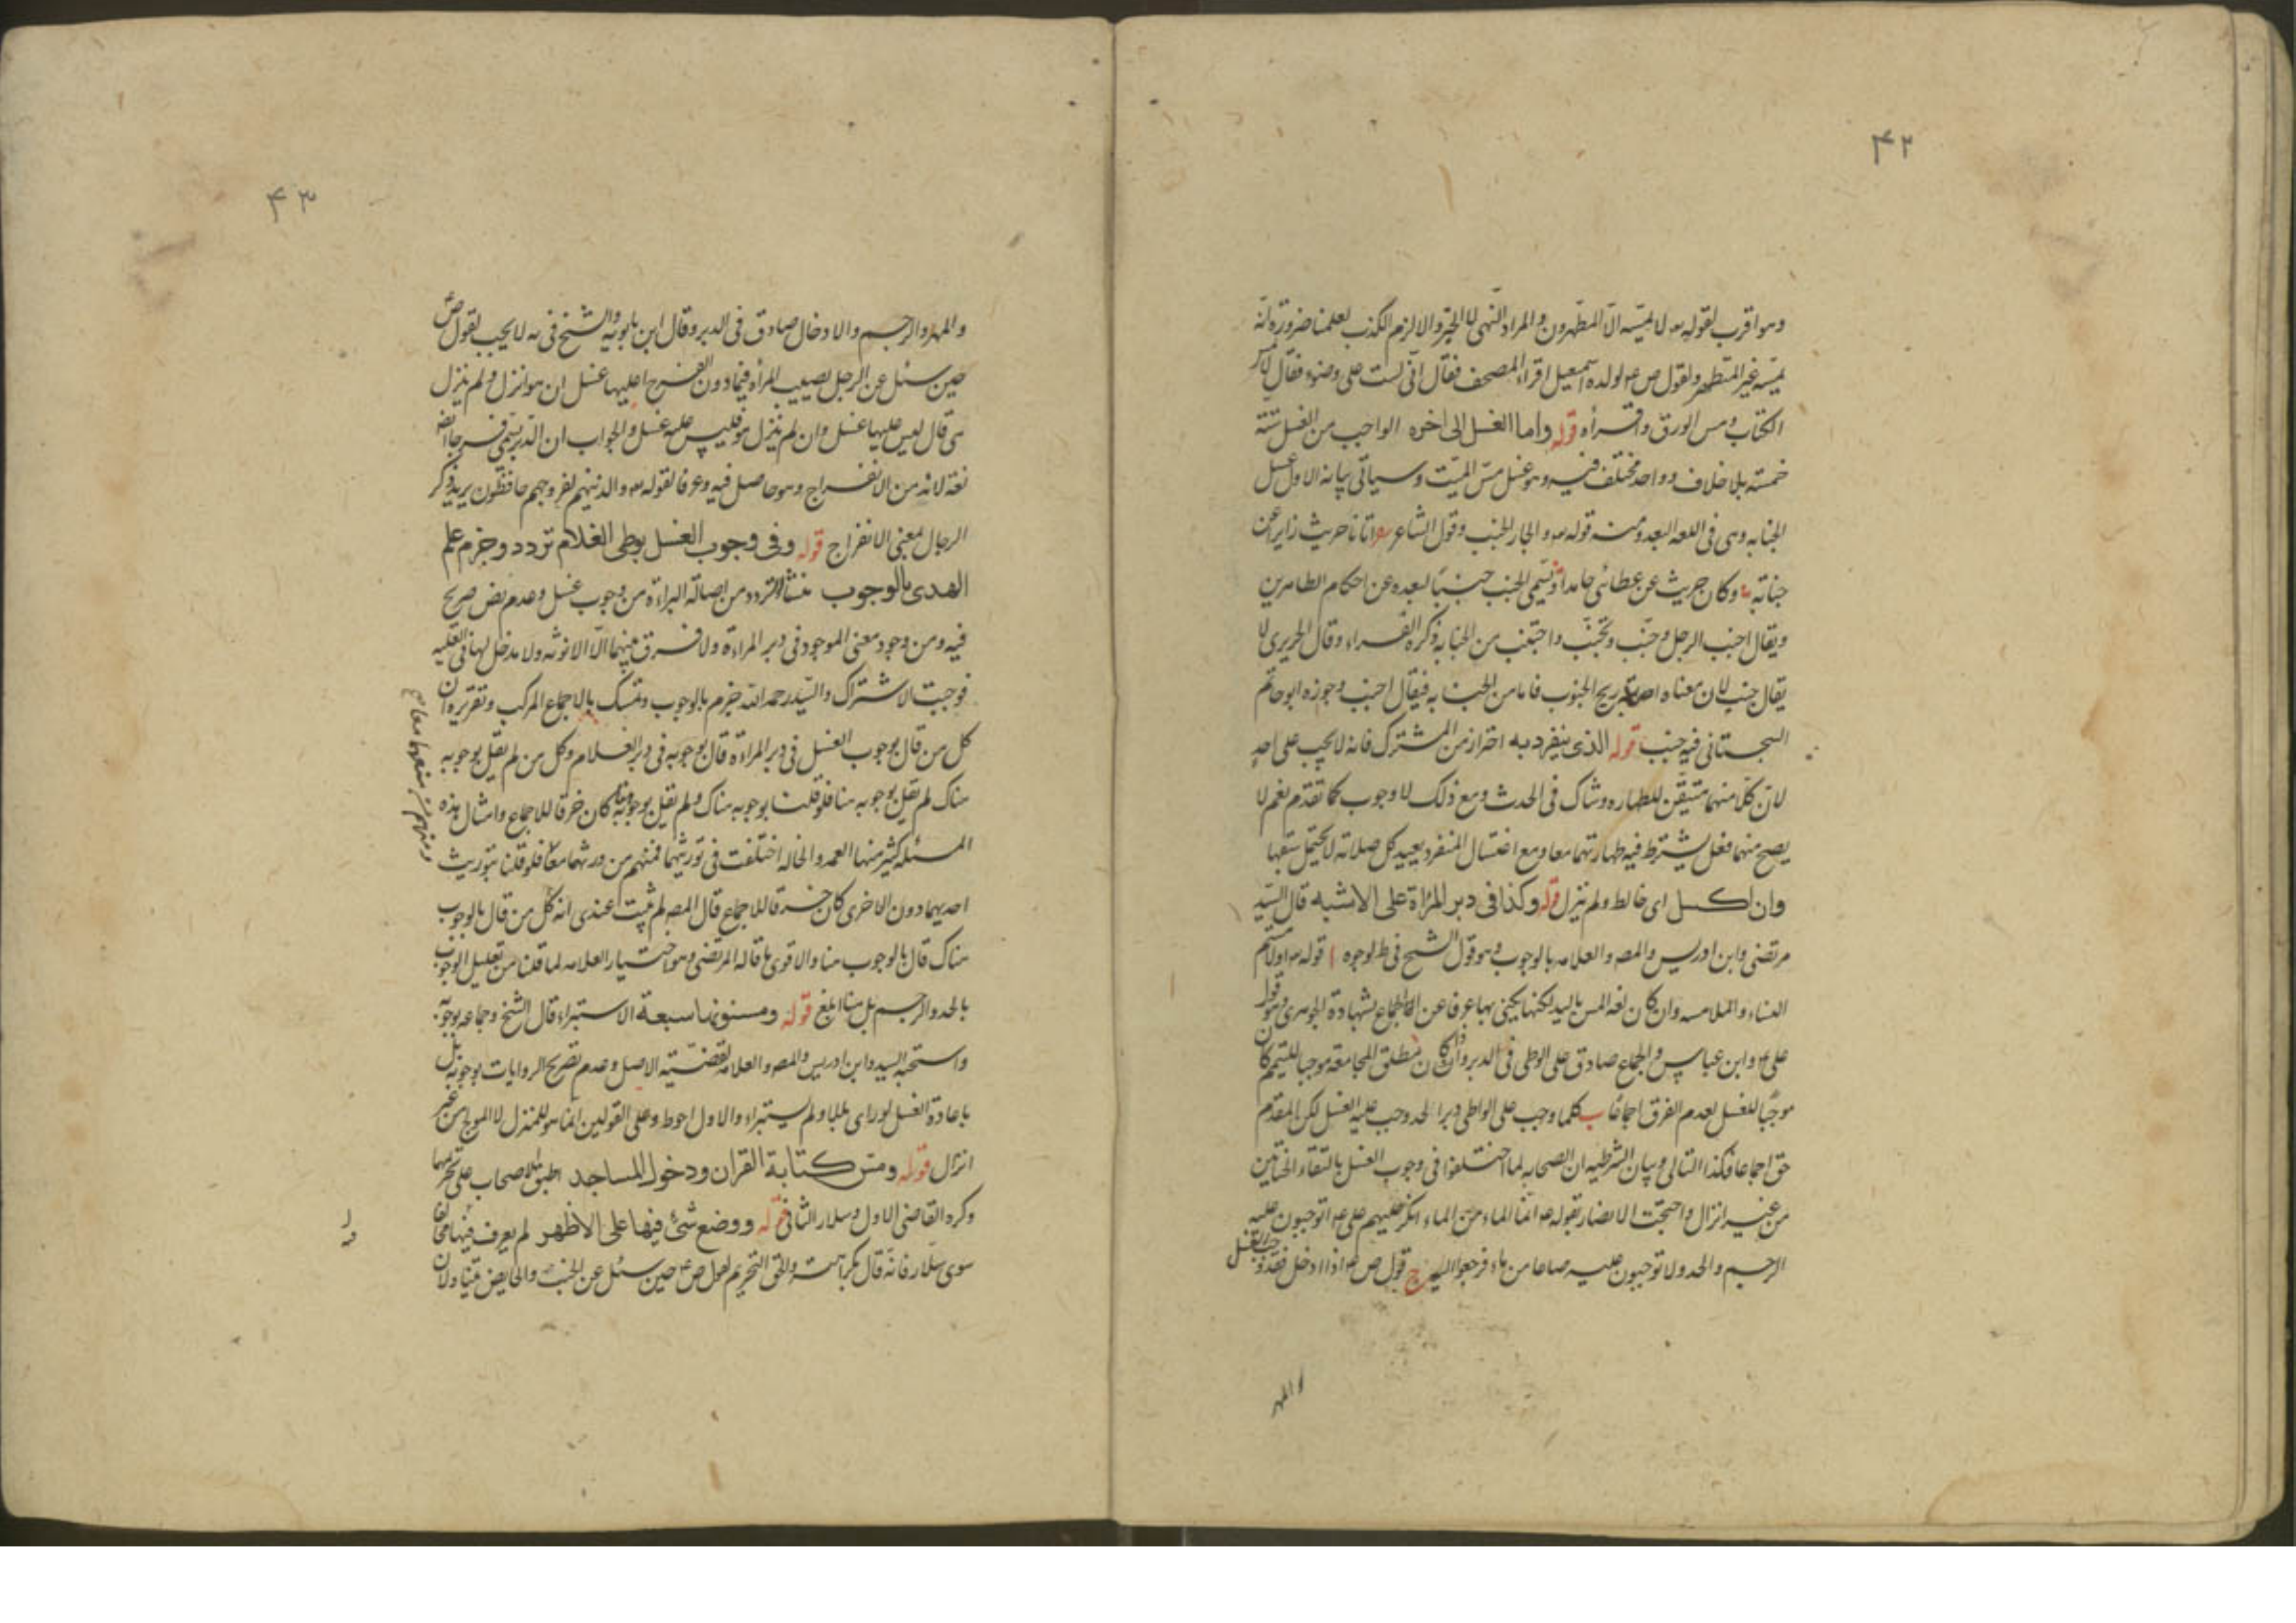 ۴۲
وهو اقرب لقوله تع لا يمسه الا المطهرون والمراد النهى لا الخبر والا لزم الكذب لعلمنا ضرورة انه
يمسه غير المتطهر ولقول ص ع لولده اسمعيل اقراء المصحف فقال انى لست على وضوء فقال لا تمس
الكتاب ومس الورق واقرأه قوله واما الغسل الى اخره الواجب من الغسل ستة
خمسة بلا خلاف وواحد مختلف فيه وهو غسل مس الميت وسياتى بيانه الاول غسل
الجنابه وهى فى اللغه البعد ومنه قوله تع والجار الجنب وقول الشاعر اتانا حريث زايرا عن
جنابة وكان حريث عن عطائى جامدا وتسمى الجنب جنبا لبعده عن احكام الطاهرين
ويقال اجنب الرجل وجنب وتجنب واجتنب من الجنابة ذكره الفراء وقال الحريرى لا
يقال جنب لان معناه اصابته ريح الجنوب فاما من الجنابه فيقال اجنب وجوزه ابو حاتم
السجستانى فيه جنب قوله الذى ينفرد به احتراز من المشترك فانه لا يجب على احد
لان كلا منهما متيقن للطهاره وشاك فى الحدث ومع ذلك لا وجوب كما تقدم نعم لا
يصح منهما فعل يشترط فيه طهارتهما معا ومع اغتسال المنفرد يعيد كل صلاته لا يحتمل سبقها
وان اكسل اى خالط ولم ينزل قوله وكذا فى دبر المراة على الاشبه قال السيد
مرتضى وابن ادريس والمصه والعلامه بالوجوب وهو قول الشيخ فى ط لوجوه ا قوله تع او لامستم
النساء والملامسه وان كان لغه المس باليد لكنها يكنى بها عرفا عن الجماع بشهادة الجوهرى وهو قول
على ع وابن عباس والجماع صادق على الوطى فى الدبر واذا كان مطلق المجامعة موجبا للتيمم كان
موجبا للغسل لعدم الفرق اجماعا ب كلما وجب على الواطى دبرا الحد وجب عليه الغسل لكن المقدم
حق اجماعا فكذا التالى وبيان الشرطيه ان الصحابه لما اختلفوا فى وجوب الغسل بالتقاء الختانين
من غير انزال واحتجت الانصار بقوله ع انما الماء من الماء انكر عليهم على ع اتوجبون عليه
الرجم والحد ولا توجبون عليه صاعا من ماء فرجعوا اليه ج قول ص ع اذا ادخل فقد وجب الغسل
والمهر
۴۳
والمهر والرجم والادخال صادق فى الدبر وقال ابن بابويه والشيخ فى يه لا يجب لقول ص ع
حين سئل عن الرجل يصيب المرأه فيما دون الفرج اعليها غسل ان هو انزل ولم تنزل
هى قال ليس عليها غسل وان لم ينزل هو فليس عليه غسل والجواب ان الدبر يسمى فرجا ايضا
لغة لانه من الانفراج وهو حاصل فيه وعرفا لقوله تع والذينهم لفروجهم حافظون يريد ذكر
الرجال لمعنى الانفراج قوله وفى وجوب الغسل بوطى الغلام تردد وجزم علم
الهدى بالوجوب منشا التردد من اصالة البراءة من وجوب غسل وعدم نص صريح
فيه ومن وجود معنى الموجود فى دبر المراءة ولا فرق بينهما الا الانوثه ولا مدخل لها فى العليه
فوجبت الاشتراك والسيد رحمه الله جزم بالوجوب وتمسك بالاجماع المركب وتقريره ان
كل من قال بوجوب الغسل فى دبر المراءة قال بوجوبه فى دبر الغلام وكل من لم يقل بوجوبه
هناك لم يقل بوجوبه هنا فلو قلنا بوجوبه هناك ولم نقل بوجوبه هنا كان خرقا للاجماع وامثال هذه
المسئله كثير منها العمه والخاله اختلفت فى توريثهما فمنهم من ورثهما معا فلو قلنا بتوريث
ومنهم من منعهما معا صح
احديهما دون الاخرى كان خرقا للاجماع قال المصه لم يثبت عندى انه كل من قال بالوجوب
هناك قال بالوجوب هنا والاقوى ما قاله المرتضى وهو اختيار العلامه لما قلنا من تعليل الوجوب
بالحد والرجم بل هنا ابلغ قوله ومسنوناته سبعة الاستبراء قال الشيخ وجماعه بوجوبه
واستحبه السيد وابن ادريس والمصه والعلامه لقضية الاصل وعدم تصريح الروايات بوجوبه بل
باعادة الغسل لو راى بللا ولم يستبراء والاول احوط وعلى القولين انما هو للمنزل لا المولج من غير
انزال قوله ومس كتابة القران ودخول المساجد اطبق الاصحاب على تحريمها
وكره القاضى الاول وسلار الثانى قوله ووضع شئ فيها على الاظهر لم يعرف فيها مخالفا
سوى سلار فانه قال بكراهته والحق التحريم لقول ص ع حين سئل عن الجنب والحايض يتناولان